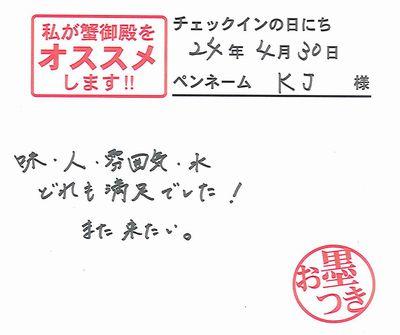 私が蟹御殿を
オススメ
します!!
チェックインの日にち
24年4月30日
ペンネーム KJ 様
味・人・雰囲気・水
どれも満足でした!
また来たい。
お墨つき